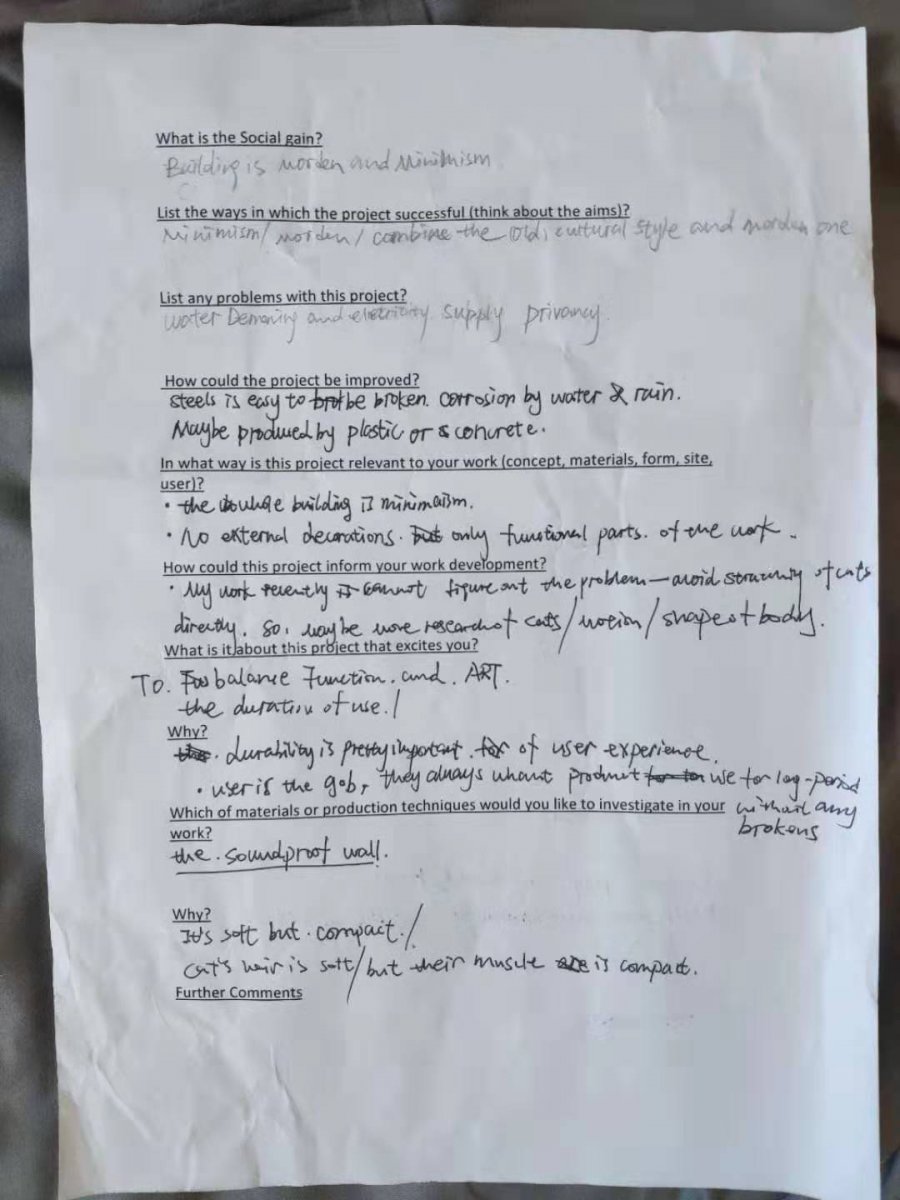 What is the Social gain?
Building is morden and Minimism
List the ways in which the project successful (think about the aims)?
Minimism/ morden/ combine the old, cultural style and morden one
List any problems with this project?
water and supply privancy.
How could the project be improved?
steels is easy to be broken. corrosion by water & rain.
Maybe produced by plastic or concrete.
In what way is this project relevant to your work (concept, materials, form, site,
user)?
• the whole building is minimalism.
• No external decorations. only functional parts. of the work.
How could this project inform your work development?
• My work recently cannot figure out the problem — avoid of cats
directly. So, maybe more research of cats/motion/shape of body.
What is it about this project that excites you?
To. balance Function. and. ART.
the duration of use./
Why?
. durability is pretty important. of user experience.
• user is the , they always whant product use for log-period
without any
brokens
Which of materials or production techniques would you like to investigate in your
work?
the. soundproof wall.
Why?
It's soft but. compact./
Cat's hair is soft/but their muscle is compact.
Further Comments